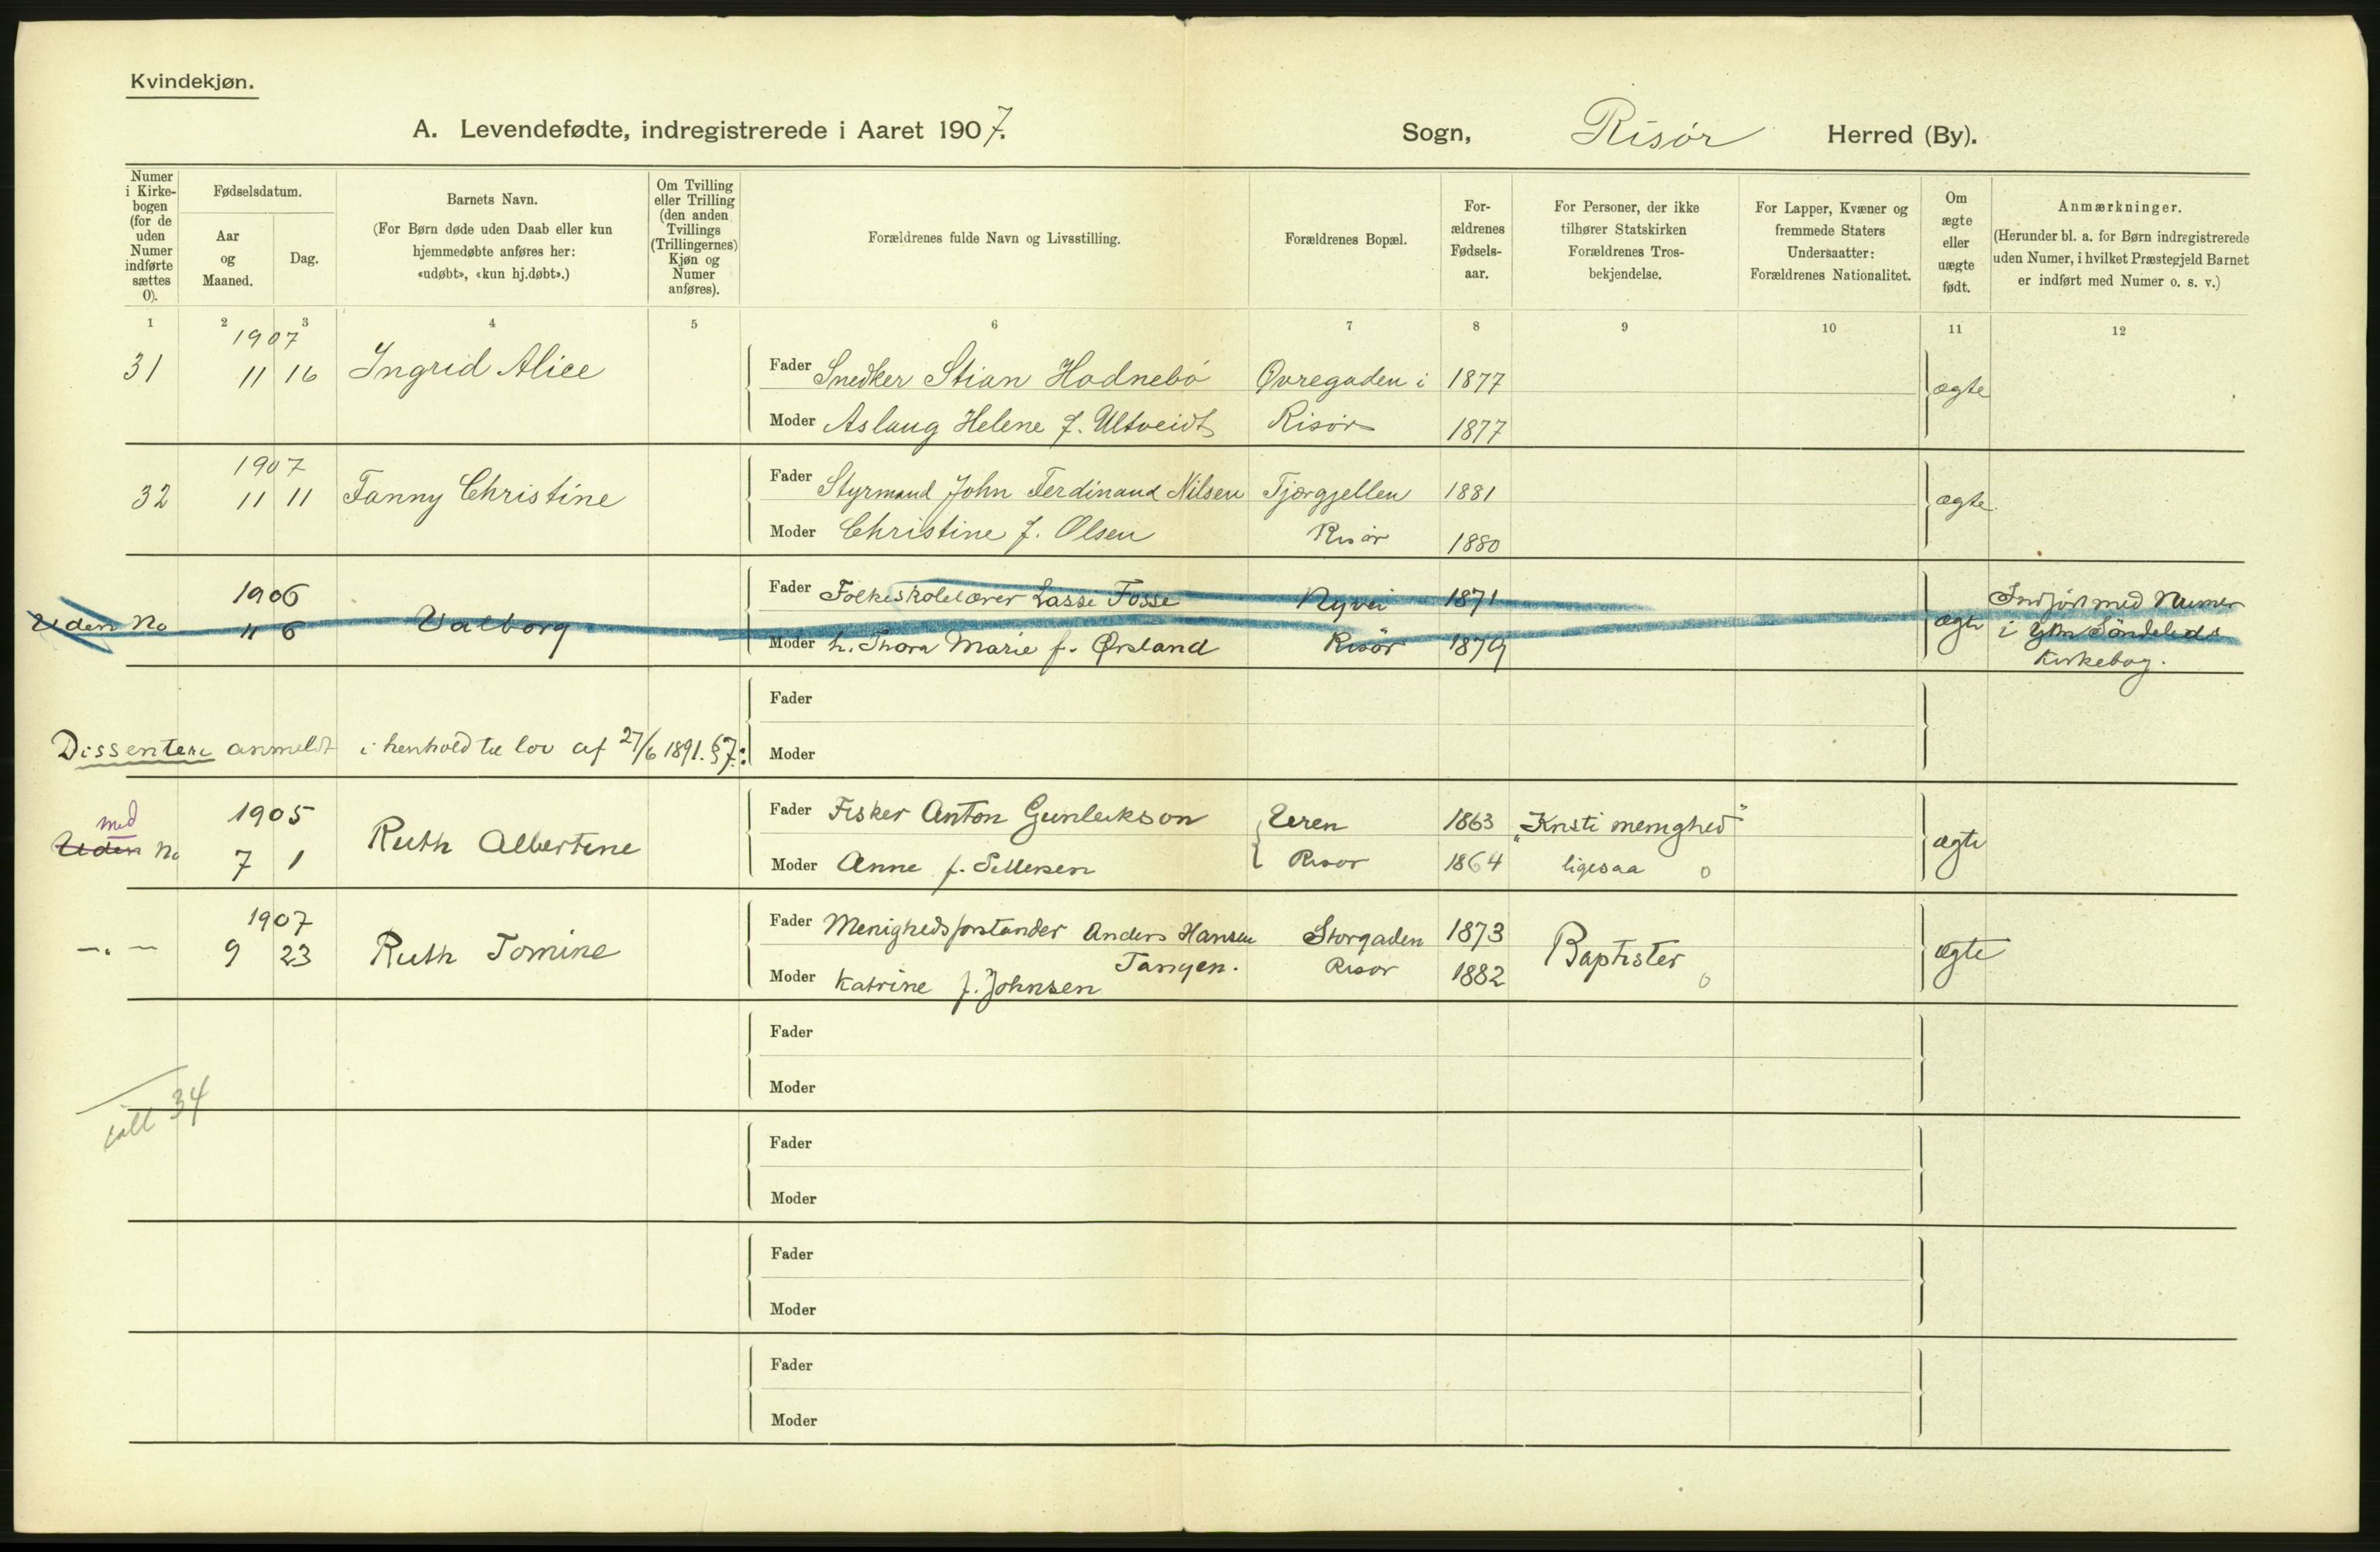 Kvindekjøn.
A. Levendefødte, indregistrerede i Aaret 1907. Sogn, Risør Herred (By).
Numer i Kirke-bogen (for de uden Numer indførte sættes 0).
Fødselsdatum.
Aar og Maaned.
Dag.
Barnets Navn.
(For Børn døde uden Daab eller kun hjemmedøbte anføres her: «udøbt», «kun hj.døbt».)
Om Tvilling eller Trilling (den anden Tvillings (Trillingernes) Kjøn og Numer anføres).
Forældrenes fulde Navn og Livsstilling.
Forældrenes Bopæl.
For-ældrenes Fødsels-aar.
For Personer, der ikke tilhører Statskirken Forældrenes Tros-bekjendelse.
For Lapper, Kvæner og fremmede Staters Undersaatter: Forældrenes Nationalitet.
Om ægte eller uægte født.
Anmærkninger.
(Herunder bl. a. for Børn indregistrerede uden Numer, i hvilket Præstegjeld Barnet er indført med Numer o. s. v.)
1 2 3 4 5 6 7 8 9 10 11 12
1907
31 11 16 Ingrid Alice Fader Snedker Stian Hodnebø Øvregaden i 1877 ægte
Moder Aslaug Helene f. Ultveidt Risør 1877
1907
32 11 11 Fanny Christine Fader Styrmand John Ferdinand Nilsen Tjærgjellen 1881 ægte
Moder Christine f. Olsen Risør 1880
1906 Fader Folkeskolelærer Lasse Fosse Nyvei 1871 Indført med Numer
Uden No 11 6 Valborg ægte i Søndeleds
Moder h. Thora Marie f. Ørsland Risør 1879 Kirkebog.
Fader
Dissentere anmeldt i henhold til lov af 27/6 1891. §7.:
Moder
med 1905 Fader Fisker Anton Gunleikson Uren 1863 „Kristi menighed"
Uden No 7 1 Ruth Albertine ægte
Moder Anne f. Risør 1864 ligesaa 0
1907 Fader Menighedsforstander Anders Hansen Storgaden 1873
—〃— 9 23 Ruth Tomine Tangen. Risør Baptister 0 ægte
Moder Katrine f. Johnsen 1882
Fader
Moder
ialt 34
Fader
Moder
Fader
Moder
Fader
Moder